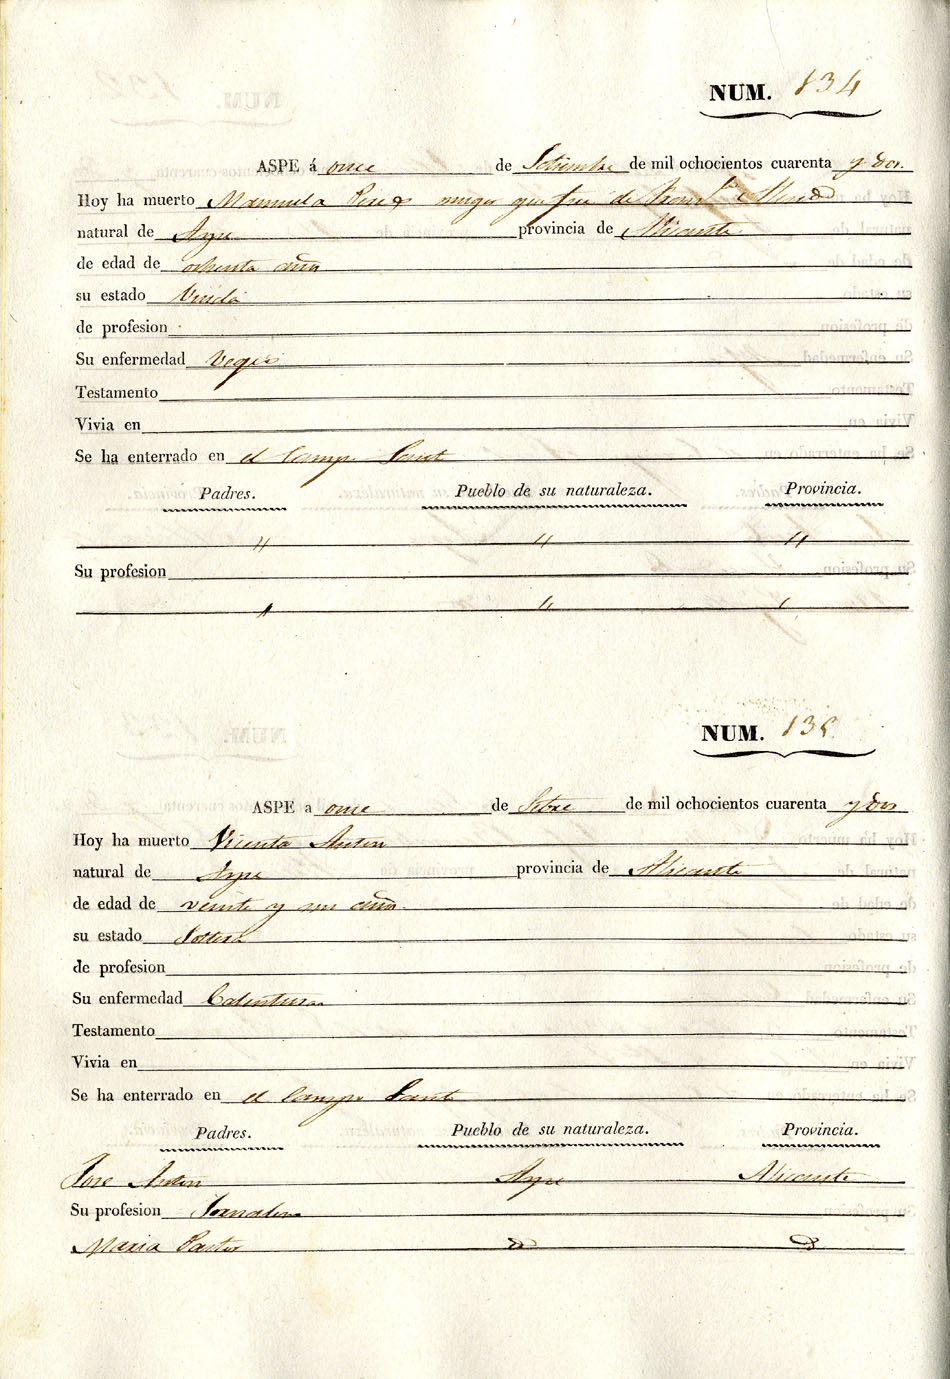 NUM. 134
ASPE á once de Setiembre de mil ochocientos cuarenta y dos.
Hoy ha muerto Manuela Perez muger que fue de
natural de Aspe provincia de Alicante
de edad de ochenta años
su estado Viuda
de profesion
Su enfermedad Vegez
Testamento
Vivia en
Se ha enterrado en el Campo Santo
Padres. Pueblo de su naturaleza. Provincia.
" " "
Su profesion
" " "
NUM. 135
ASPE a once de Setbre de mil ochocientos cuarenta y dos
Hoy ha muerto Vicenta Anton
natural de Aspe provincia de Alicante
de edad de veinte y un años
su estado Soltera
de profesion
Su enfermedad Calenturas
Testamento
Vivia en
Se ha enterrado en el Campo Santo
Padres. Pueblo de su naturaleza. Provincia.
Jose Anton Aspe Alicante
Su profesion Jornalero
Maria Pastor